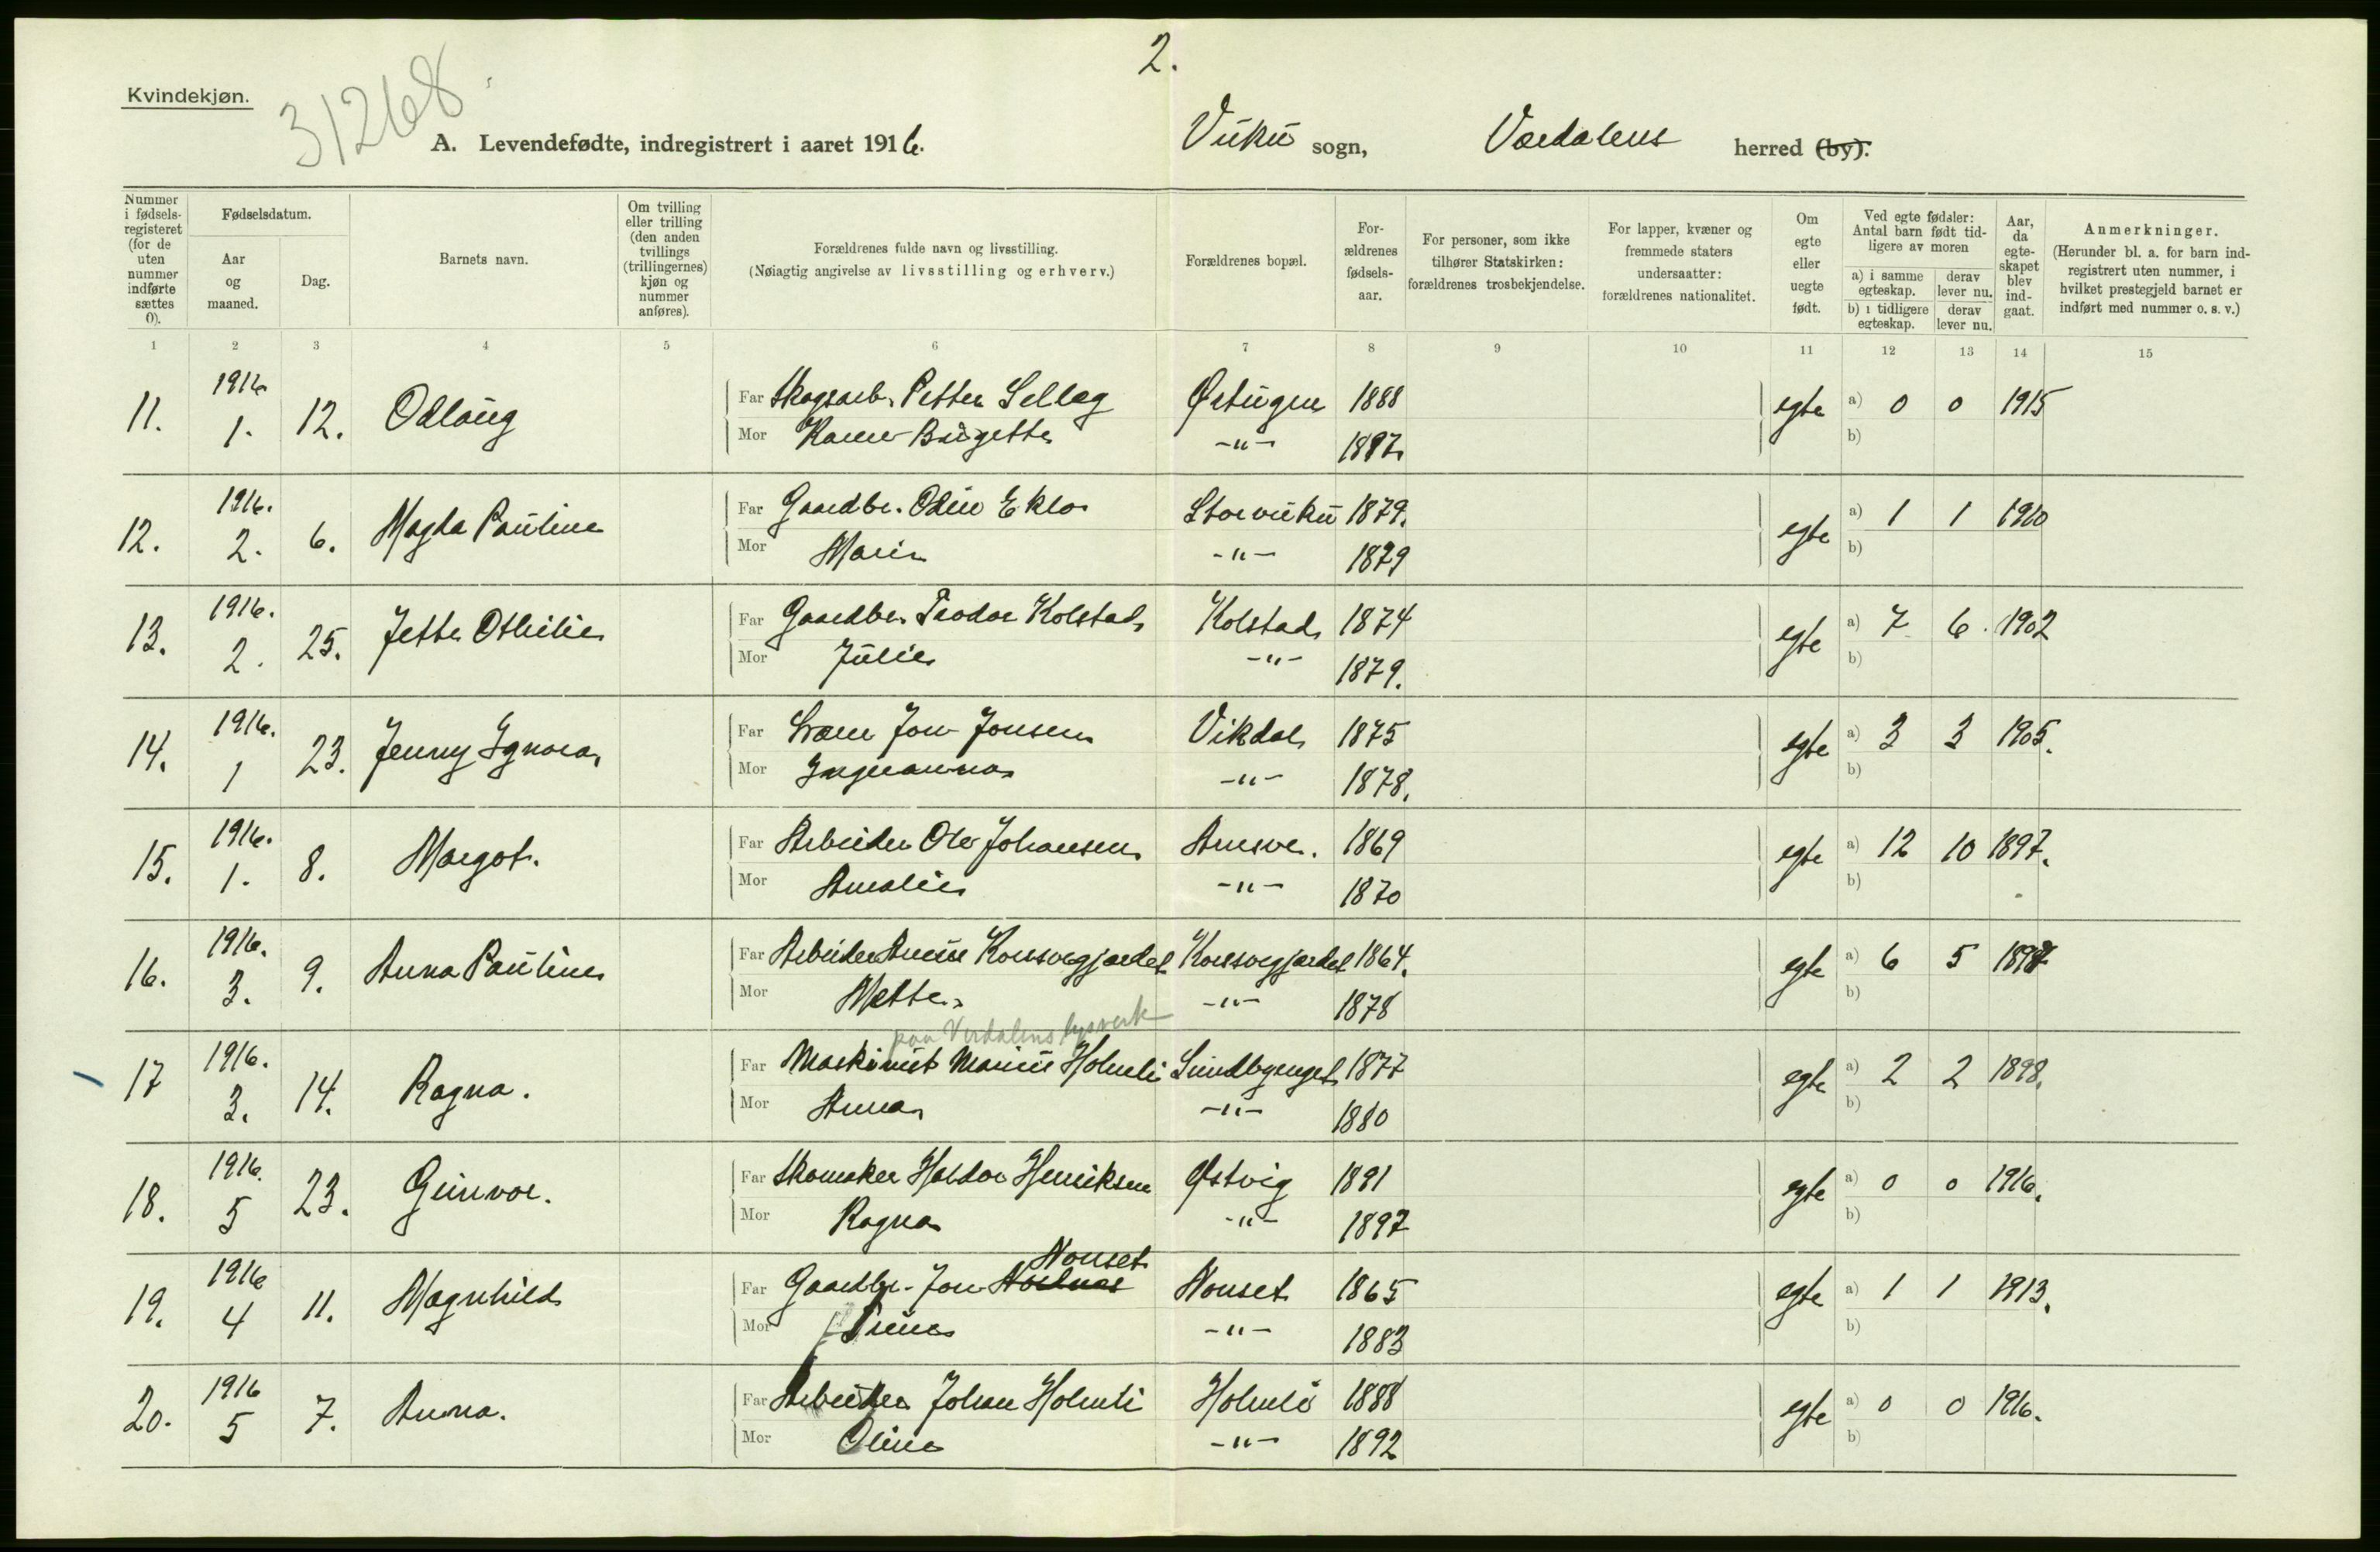 2.
Kvindekjøn.
31268
A. Levendefødte, indregistrert i aaret 1916.
Vuku sogn, Værdalens herred (by).
Nummer i fødsels-registeret (for de uten nummer indførte sættes 0).
Fødselsdatum.
Aar og maaned.
Dag.
Barnets navn.
Om tvilling eller trilling (den anden tvillings (trillingernes) kjøn og nummer anføres).
Forældrenes fulde navn og livsstilling.
(Nøiagtig angivelse av livsstilling og erhverv.)
Forældrenes bopæl.
For-ældrenes fødsels-aar.
For personer, som ikke tilhører Statskirken: forældrenes trosbekjendelse.
For lapper, kvæner og fremmede staters undersaatter: forældrenes nationalitet.
Om egte eller uegte født.
Ved egte fødsler: Antal barn født tid-ligere av moren
a) i samme egteskap.
derav lever nu.
b) i tidligere egteskap.
derav lever nu.
Aar, da egte-skapet blev ind-gaat.
Anmerkninger.
(Herunder bl. a. for barn ind-registrert uten nummer, i hvilket prestegjeld barnet er indført med nummer o. s. v.)
1 2 3 4 5 6 7 8 9 10 11 12 13 14 15
11. 1916 1. 12. Odlaug
Far Skogsarb. Petter Sellæg 1888 egte a) 0 0 1915
Mor Karen Birgitte -"- 1887 b)
12. 1916. 2. 6. Magda Pauline
Far Gaardbr. Odin Eklo Storvuku 1879. egte a) 1 1 1910
Mor Marie -"- 1879 b)
13. 1916. 2. 25. Jette Othilie
Far Gaardbr. Teodor Kolstad Kolstad 1874 egte a) 7 6 1902
Mor Julie -"- 1879. b)
14. 1916. 1 23. Jenny Ignora
Far Jon Jonsen Vikdal 1875 egte a) 3 3 1905.
Mor Ingeranna -"- 1878. b)
15. 1916. 1. 8. Margot.
Far Arbeider Ole Johansen 1869 egte a) 12 10 1897.
Mor Amalie -"- 1870 b)
16. 1916. 3. 9. Anna Pauline
Far Arbeider Korsvegjardet Korsvegjardet 1864. egte a) 6 5
Mor Mette -"- 1878 b)
paa Verdalens lysverk
17 1916. 3. 14. Ragna.
Far Maskinist Marius Holmli Sundbyenget 1877 egte a) 2 2 1898.
Mor Anna -"- 1880 b)
18. 1916. 5 23. Gunvor.
Far Skomaker Haldor Henriksen Østvig 1891 egte a) 0 0 1916.
Mor Ragna -"- 1897 b)
Nonset
19. 1916 4 11. Magnhild
Far Gaardbr. Jon Nonset 1865 egte a) 1 1 1913.
Mor Trine -"- 1883 b)
20. 1916 5 7. Anna.
Far Arbeider Johan Holmli Holmli 1888 egte a) 0 0 1916.
Mor Oline -"- 1892 b)